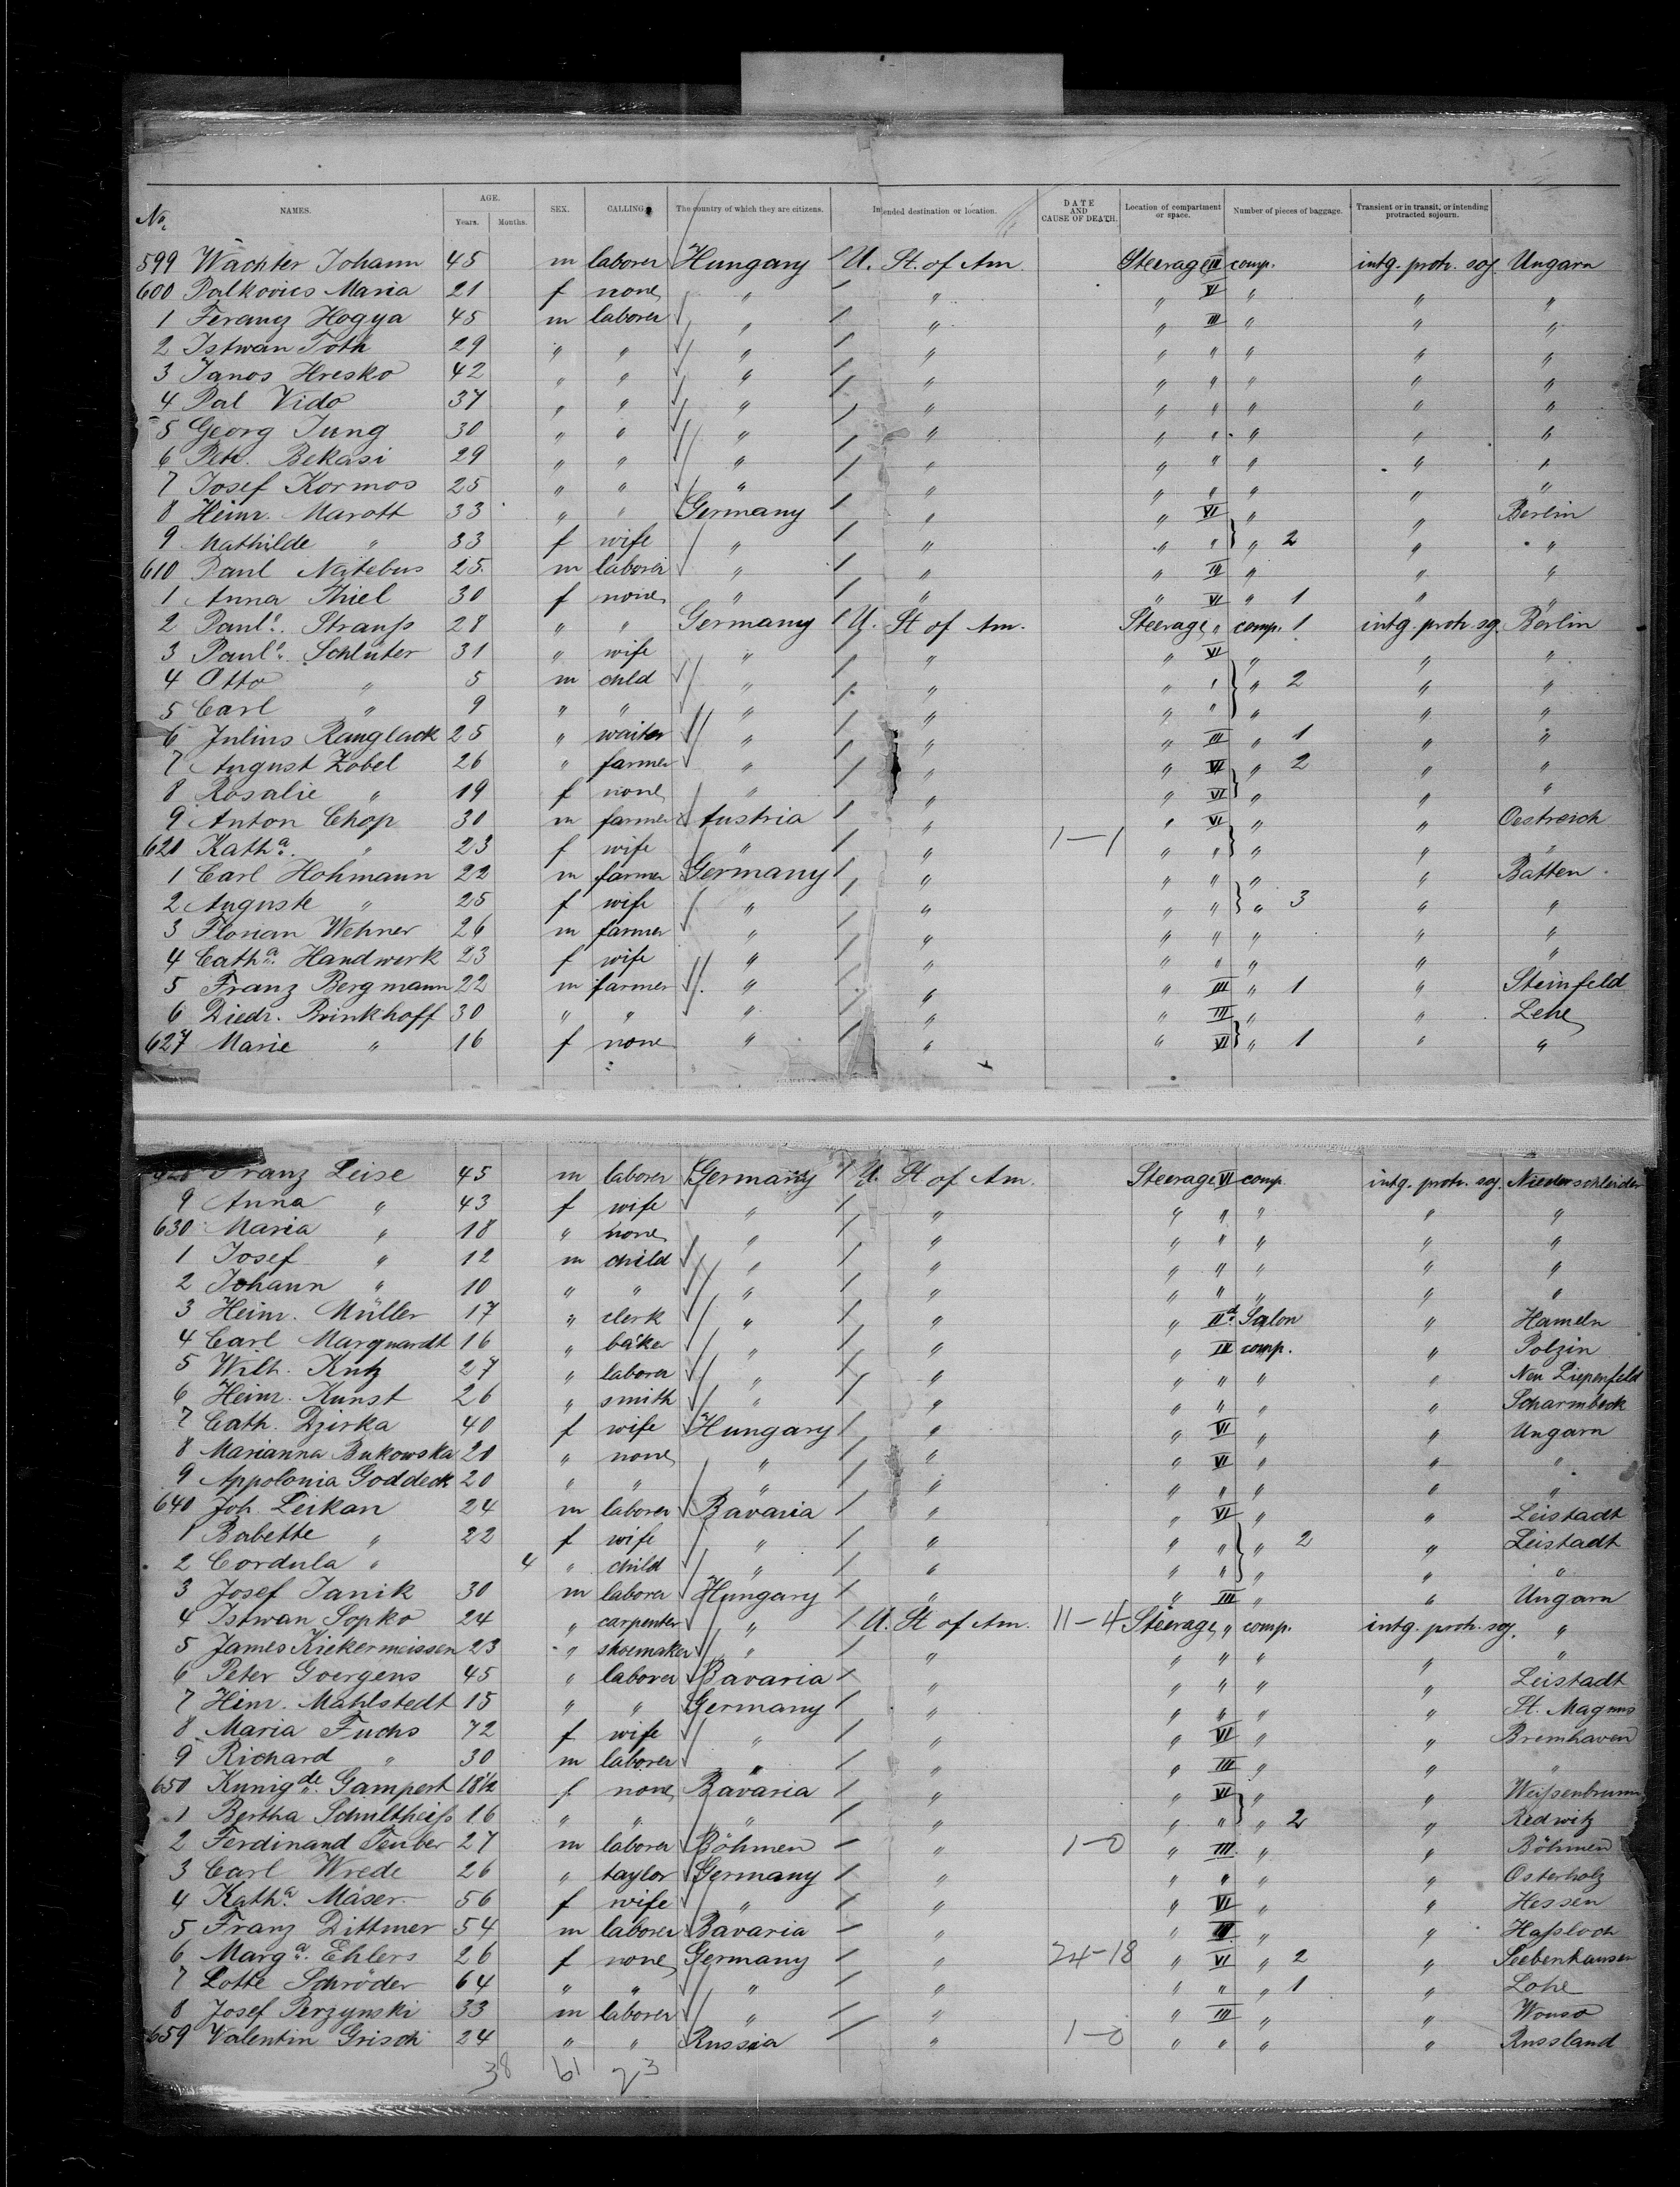 No. NAMES. AGE. Years. Months. SEX. CALLING. The country of which they are citizens. Intended destination or location. DATE AND CAUSE OF DEATH. Location of compartment or space. Number of pieces of baggage. Transient or in transit, or intending protracted sojourn.
599 Wächter Johann 45 m laborer Hungary / U. St. of Am. Steerage III comp. intg. protr. soj. Ungarn
600 Palkovics Maria 21 f none " / " " VI " " "
1 Ferancz Hogya 45 m laborer " / " " III " " "
2 Istwan Toth 29 " " " / " " " " " "
3 Janos Hresko 42 " " " / " " " " " "
4 Pal Vido 37 " " " / " " " " " "
5 Georg Jung 30 " " " / " " " " " "
6 Petr. Bekasi 29 " " " / " " " " " "
7 Josef Kormos 25 " " " / " " " " " "
8 Heinr. Marott 33 " " Germany / " " VI " " Berlin
9 Mathilde " 33 f wife " / " " " " 2 " "
610 Paul Natebus 25 m laborer " / " " III " " "
1 Anna Thiel 30 f none " / " " VI " 1 " "
2 Paule. Strauss 28 " " Germany / U. St of Am. Steerage " comp. 1 intg. protr. sg. Berlin
3 Paule. Schluter 31 " wife " / " " VI " " "
4 Otto " 5 m chld " / " " " " 2 " "
5 Carl " 9 " " " / " " " " " "
6 Julius Ranglack 25 " waiter " / " " III " 1 " "
7 August Zobel 26 " farmer " / " " VI " 2 " "
8 Rosalie " 19 f none " / " " VI " " "
9 Anton Chop 30 m farmer Austria / " " VI " " Oestreich
620 Katha. " 23 f wife " / " 1-1 " " " " "
1 Carl Hohmann 22 m farmer Germany / " " " " " Batten
2 Auguste " 25 f wife " / " " " " 3 " "
3 Florian Wehner 26 m farmer " / " " " " " "
4 Catha. Handwerk 23 f wife " / " " " " " "
5 Franz Bergmann 22 m farmer " / " " III " 1 " Steinfeld
6 Diedr. Brinkhoff 30 " " " / " " III " " Lehe
627 Marie " 16 f none " / " " VI " 1 " "
Franz Leise 45 m laborer Germany / U. St of Am. Steerage VI comp. intg. protr. soj. Niederschleider
9 Anna " 43 f wife " / " " " " " "
630 Maria " 18 " none " / " " " " " "
1 Josef " 12 m child " / " " " " " "
2 Johann " 10 " " " / " " " " " "
3 Heinr. Müller 17 " clerk " / " " IId. Salon " Hameln
4 Carl Marquardt 16 " baker " / " " III comp. " Polzin
5 Wilh. Kutz 27 " laborer " / " " " " " Neu Liepenfeld
6 Heinr. Kunst 26 " smith " / " " " " " Scharmbeck
7 Cath. Dzirka 40 f wife Hungary / " " VI " " Ungarn
8 Marianna Bukowska 20 " none " / " " VI " " "
9 Appolonia Goddeck 20 " " " / " " " " " "
640 Joh. Leikan 24 m laborer Bavaria / " " VI " " Leistadt
1 Babette " 22 f wife " / " " " " 2 " Leistadt
2 Cordula " 4 " child " / " " " " " "
3 Josef Janik 30 m laborer Hungary / " " III " " Ungarn
4 Istwan Sopko 24 " carpenter " / U. St of Am. 11-4 Steerage " comp. intg. protr. soj. "
5 James Kiekermeissen 23 " shoemaker " / " " " " " "
6 Peter Goergens 45 " laborer Bavaria / " " " " " Leistadt
7 Hinr. Mahlstedt 15 " " Germany / " " " " " St. Magnus
8 Maria Fuchs 72 f wife " / " " VI " " Bremhaven
9 Richard " 30 m laborer " / " " III " " "
650 Kunigde. Gampert 18½ f none Bavaria / " " VI " " Weissenbrunn
1 Bertha Schultheiss 16 " " " / " " " " 2 " Redwitz
2 Ferdinand Teuber 27 m laborer Böhmen / " 1-0 " III " " Böhmen
3 Carl Wrede 26 " taylor Germany / " " " " " Osterholz
4 Katha. Mäser 56 f wife " / " " VI " " Hessen
5 Franz Dittmer 54 m laborer Bavaria / " " III " " Hassloch
6 Marga. Ehlers 26 f none Germany / " 24-18 " VI " 2 " Seebenhausen
7 Lotte Schröder 64 " " " / " " " " 1 " Lohe
8 Josef Perzynski 33 m laborer " / " " III " " Wonso
659 Valentin Grisch 24 " " Russia / " 1-0 " " " " Russland
38 61 23